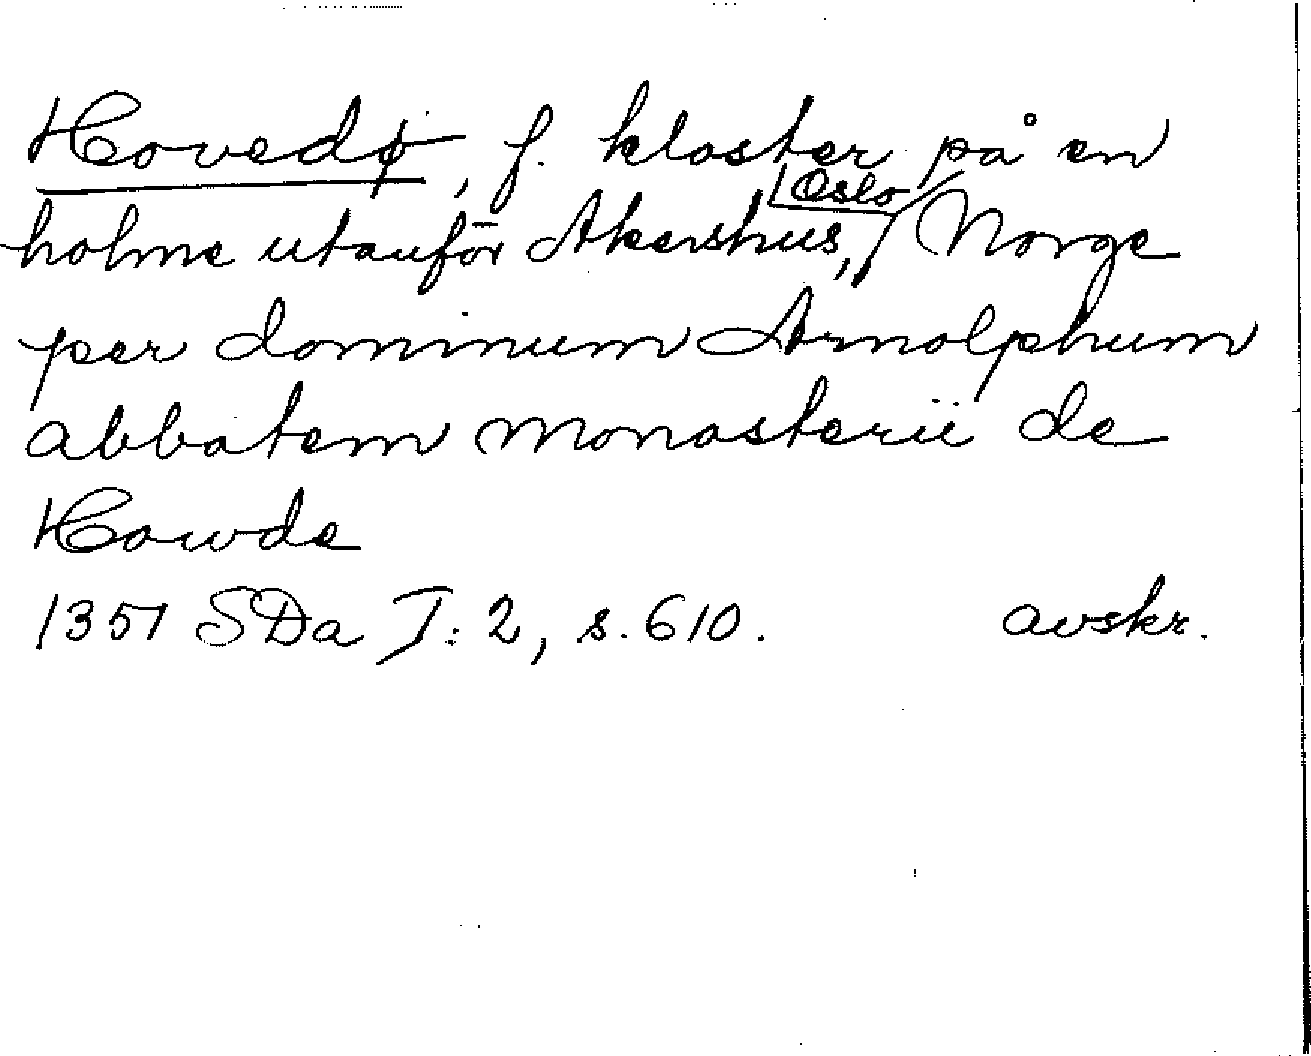 Hovedø, f. kloster på en
holme utanför Akershus, Oslo, Norge
per dominum Arnolphum
abbatem monasterii de
Howde
1351 SDa I:2, s. 610. avskr.